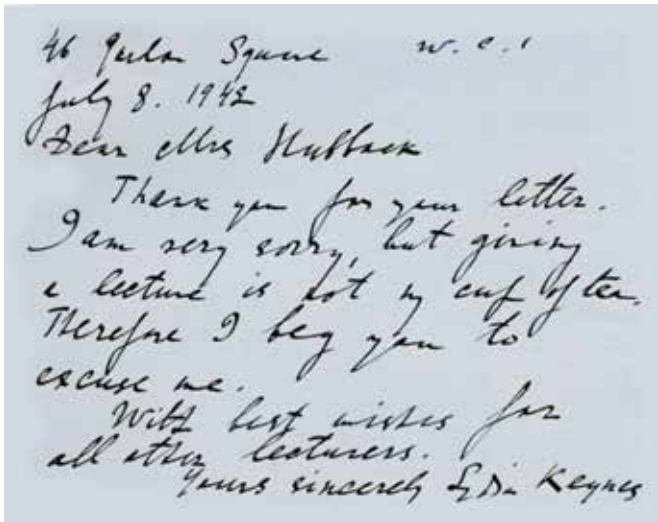 46 Gordon Square W.C.1
July 8. 1942
Dear Mrs Hubback
Thank you for your letter.
I am very sorry, but giving
a lecture is not my cup of tea.
Therefore I beg you to
excuse me.
With best wishes for
all other lecturers.
Yours sincerely Lydia Keynes